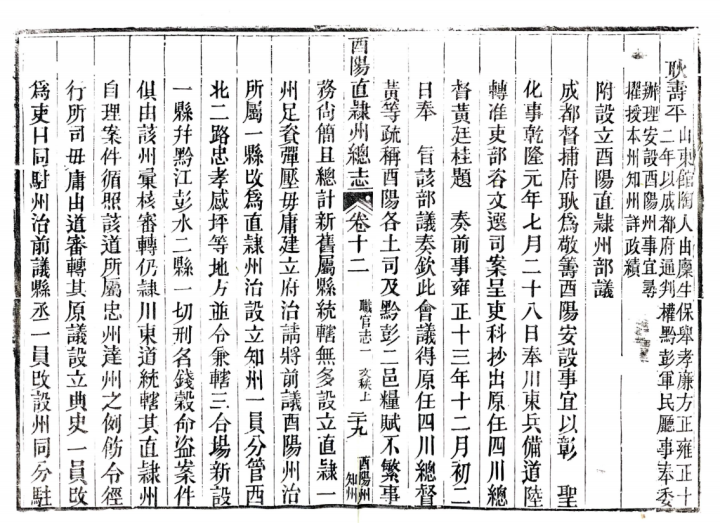 耿壽平山東館陶人由廩生保舉孝廉方正雍正十
二年以成都府通判權黔彭軍民廳事奉委
辦理安設酉陽州事宜尋
擢授本州知州詳政績
附設立酉陽直隸州部議
成都督捕府耿爲敬籌酉陽安設事宜以彰 聖
化事乾隆元年七月二十八日奉川東兵備道陸
轉准吏部咨文選司案呈吏科抄出原任四川總
督黃廷桂題 奏前事雍正十三年十二月初二
日奉 旨該部議奏欽此會議得原任四川總督
黃等疏稱酉陽各土司及黔彭二邑糧賦不繁事
酉陽直隸州總志 卷十二 職官志一 文秩上 二九 酉陽州知州
務尙簡且總計新舊屬縣統轄無多設立直隸一
州足資彈壓毋庸建立府治請將前議酉陽州治
所屬一縣改爲直隸州治設立知州一員分管西
北二路忠孝感坪等地方並令兼轄三合場新設
一縣幷黔江彭水二縣一切刑名錢穀命盜案件
俱由該州彙核審轉仍隸川東道統轄其直隸州
自理案件循照該道所屬忠州達州之例飭令徑
行所司毋庸由道審轉其原議設立典史一員改
爲吏目同駐州治前議縣丞一員改設州同分駐